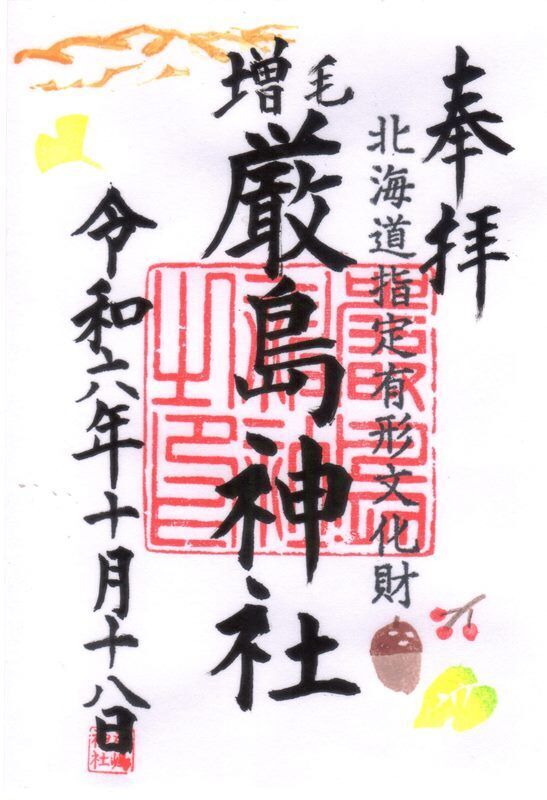 奉拝
北海道指定有形文化財
増毛
厳島神社
令和六年十月十八日